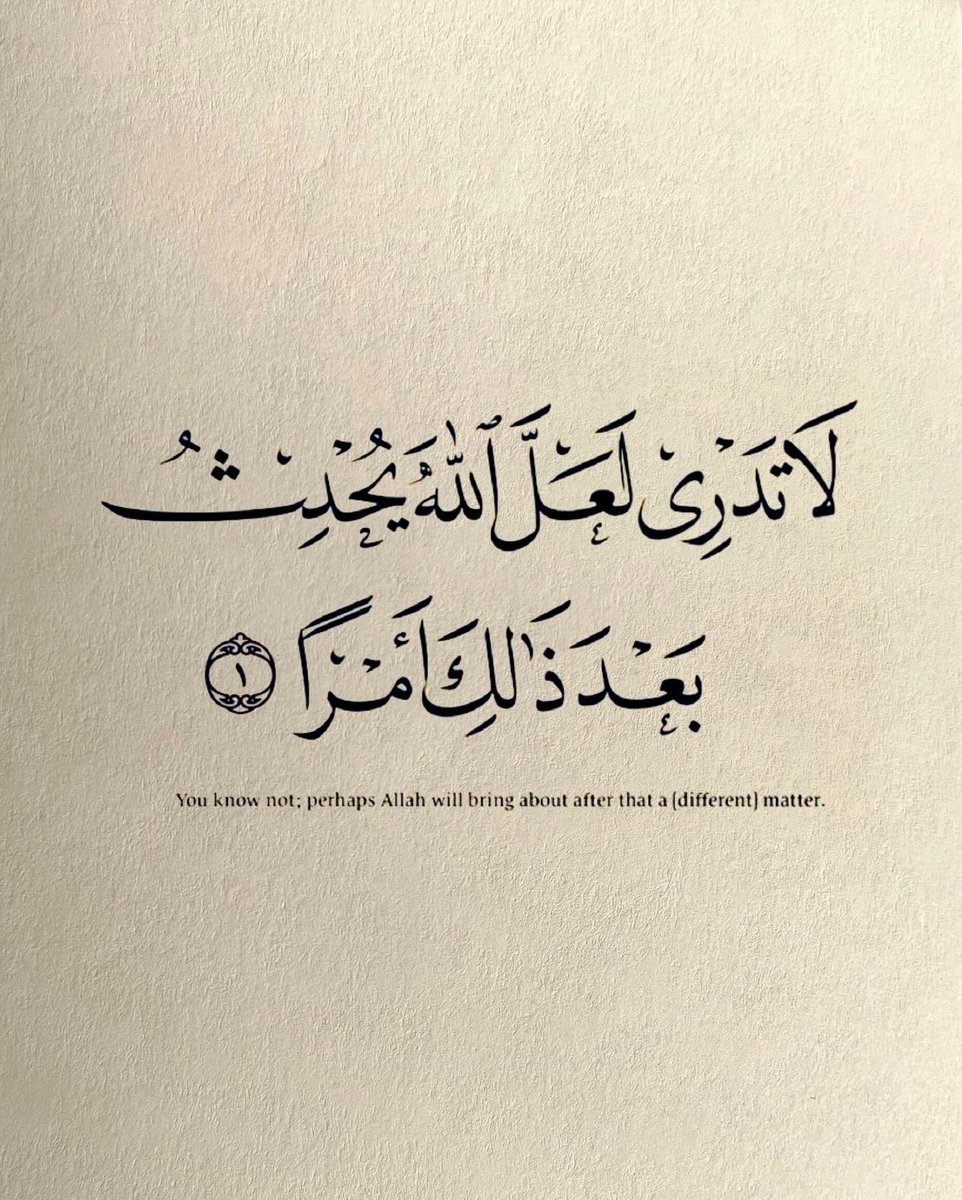 لَا تَدْرِى لَعَلَّ ٱللَّهَ يُحْدِثُ
بَعْدَ ذَٰلِكَ أَمْرًا ١
You know not; perhaps Allah will bring about after that a (different) matter.